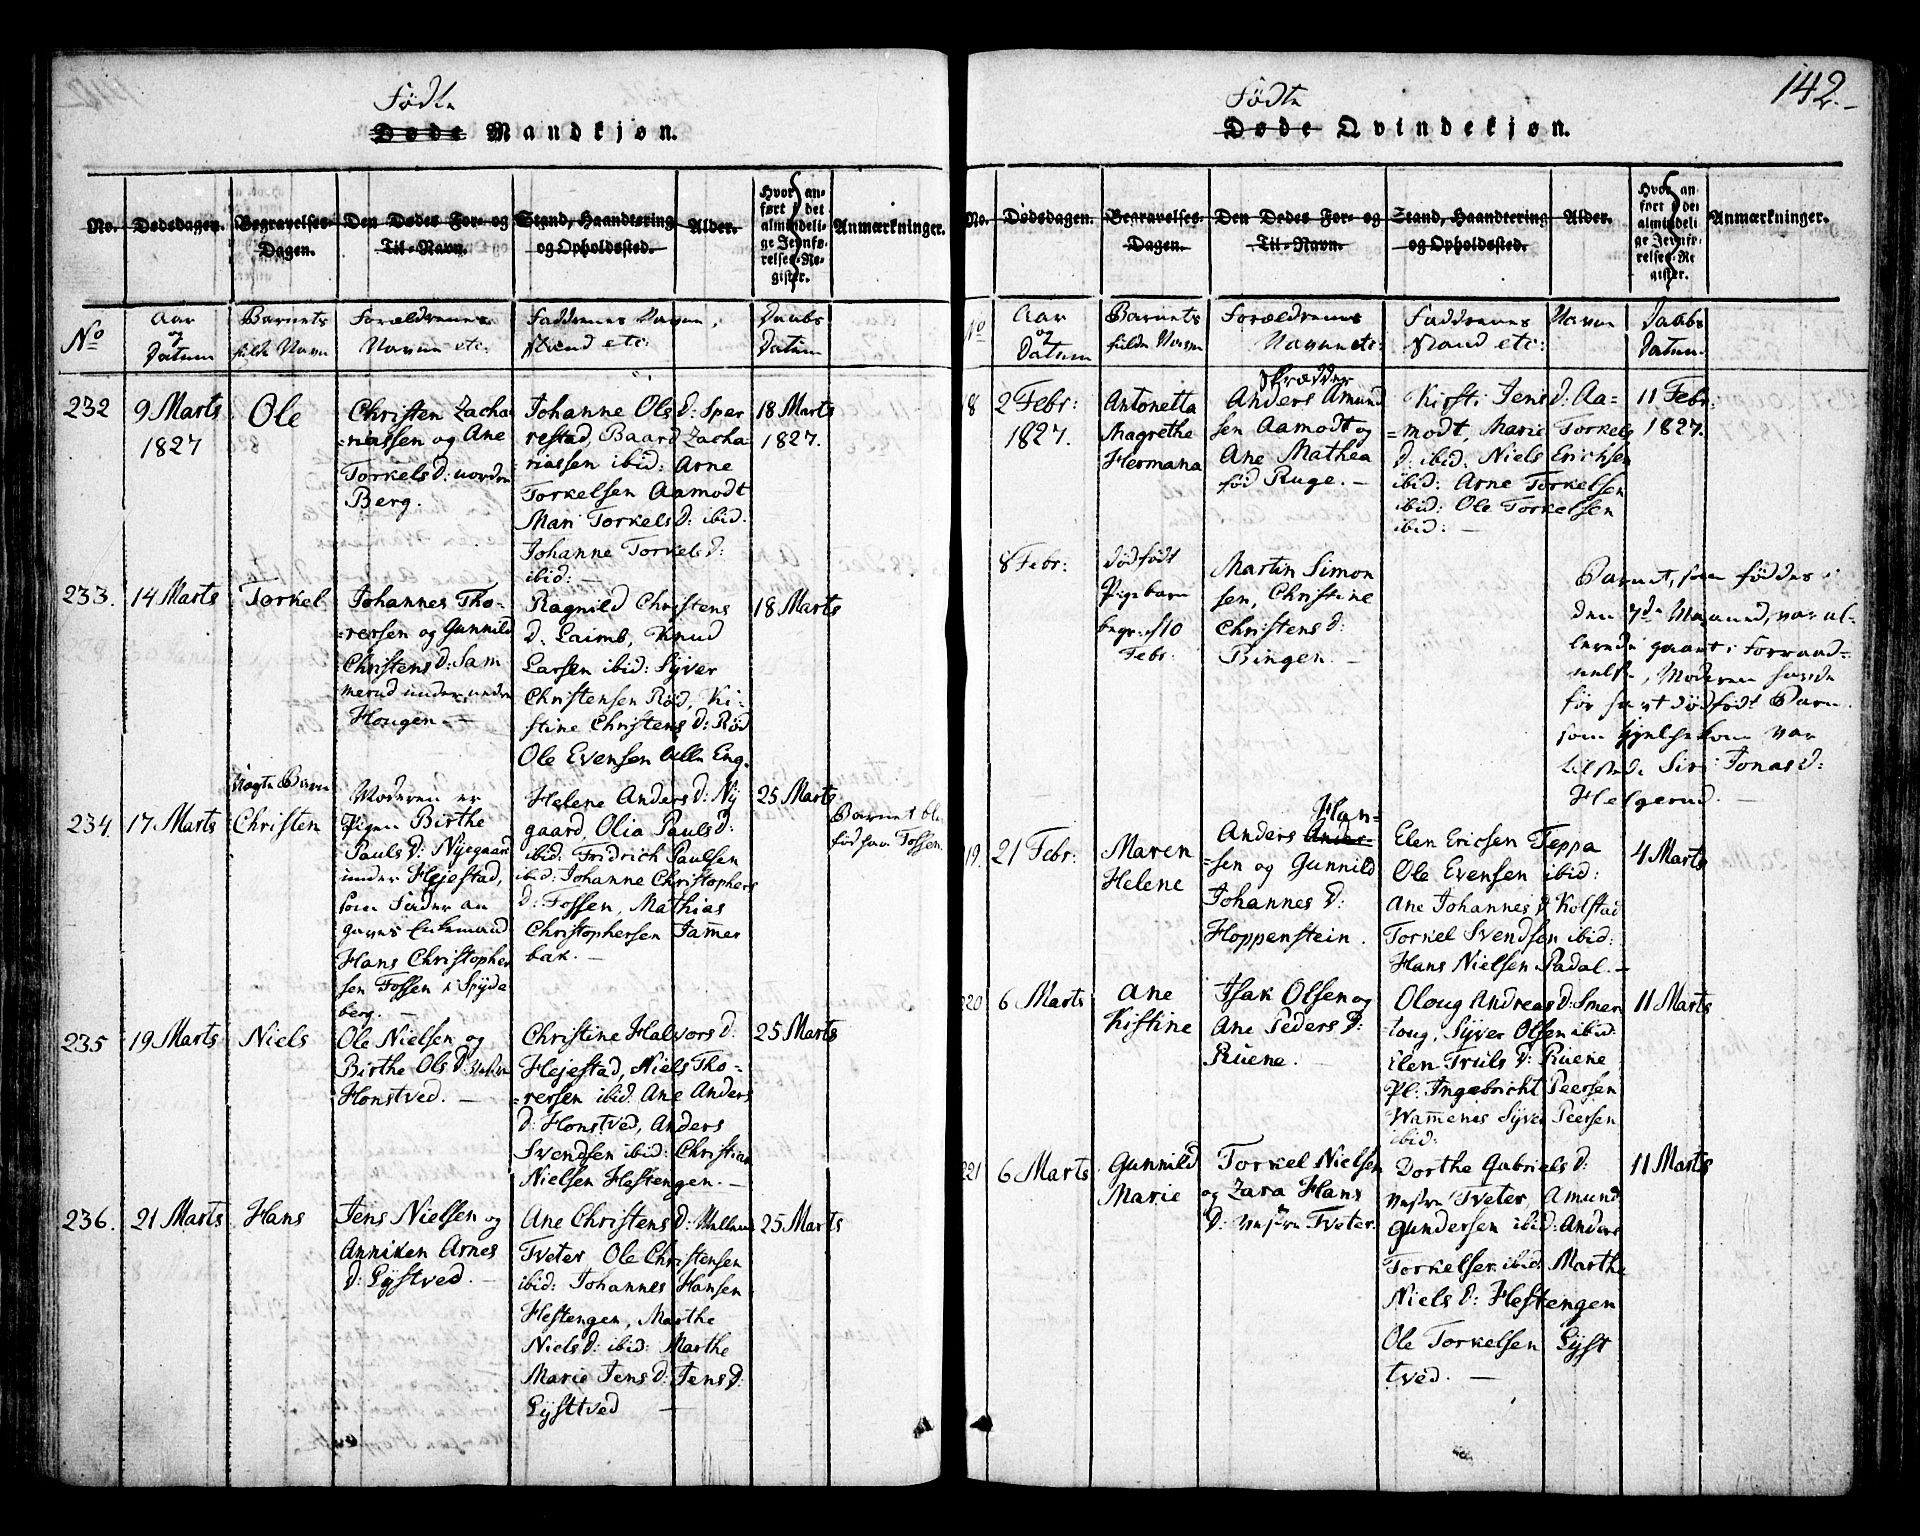 142.
Fødte
Døde Mandkjøn.
No.
Dødsdagen.
Begravelses-
Dagen.
Den Dødes For- og
Til-Navn.
Stand, Haandtering
og Opholdssted.
Alder.
Hvor an-
ført i det
almindeli-
ge Jevnfø-
relses-Re-
gister.
Anmærkninger.
No
Aar
og
Datum
Barnets
fulde Navn
Forældrenes
Navne etc:
Faddrenes Navne,
Stand etc:
Daabs
Datum
232
9 Marts
1827
Ole
Christen Zacha
=riassen og Ane
Torkelsd: nordre
Berg.
Johanne Olsd: Sper
restad, Baard Zacha-
riassen ibid: Arne
Torkelsen Aamodt
Mari Torkelsd: ibid.
Johanne Torkelsd:
ibid: —
18 Marts
1827.
233.
14 Marts
Torkel
Johannes Tho-
=rersen og Gunnild
Christensd: Sam
merud under
Hougen —
Ragnild Christens
d. Laimb, Knud
Larsen ibid: Syver
Christensen Rød, Ki-
stine Christensd: Rød
Ole Evensen Eng.
18 Marts
234.
17 Marts
Uægte Barn
Christen
Moderen er
Pigen Birthe
Paulsd: Nyegaard
under Hejestad,
som Fader an
gaves
Hans Christopher
sen Fossen i Spyde
berg. —
Helene Andersd: Ny
gaard, Olia Paulsd:
ibid: Fridrich Paulsen
ibid: Johanne Christophers
d: Fossen, Mathias
Christophersen Jamer
bak. —
25 Marts
Barnet
fød paa Fossen.
235
19 Marts
Niels
Ole Nielsen og
Birthe Olsd:
Honstved. —
Christine Halvorsd:
Hejestad, Niels Tho-
=rersen ibid Ane Anders
d: Honstved, Anders
Svendsen ibid: Christian
Nielsen Hestengen. —
25 Marts
236.
21 Marts
Hans
Jens Nielsen og
Anniken Arnes
d: Lystved. —
Ane Christensd:
Tveter Ole Christensen
ibid: Johannes Hansen
Hestengen, Marthe
Nielsd: ibid: Marthe
Marie Jensd: Jensd:
Lysttved —
25 Marts
Fødte
Døde Qvindekjøn.
No.
Dødsdagen.
Begravelses-
Dagen.
Den Dødes For- og
Til-Navn.
Stand, Haandtering
og Opholdssted.
Alder.
Hvor an
ført i det
almindeli
ge Jevnfø-
relses-Re
gister.
Anmærkninger.
No
Aar
og
Datum
Barnets
fulde Navn
Forældrenes
Navne etc:
Faddrenes Navne
Stand etc:
Daabs
Datum.
8
2 Febr:
1827.
Antonetta
Magrethe
Hermana
Skrædder
Anders Amund
sen Aamodt og
Ane Mathea
fød Ruge. —
Kirsti Jensd: Aa-
=modt, Marie Torkels
d: ibid. Niels Erichsen
ibid: Arne Torkelsen
ibid: Ole Torkelsen
ibid: —
11 Febr:
1827.
8 Febr:
dødfødt
Pigebarn
begr: d 10
Febr:
Martin Simon
sen, Christine
Christensd:
Bingen. —
Barnet, som fødtes i
den 7de Maaned, var al-
lerede gaaet i Forraad-
nelse, Moderen havde
før havt dødfødt Barn.
som Hjelpekone var
tilstede Siri Jonasd:
Helgerud. —
19.
21 Febr:
Maren
Helene
Han-
Anders Ander-
=sen og Gunnild
Johannesd:
Hoppenstein.
Elen Ericsen Teppa
Ole Evensen ibid:
Ane Johannesd Kolstad
Torkel Svendsen ibid:
Hans Nielsen Radal. —
4 Marts
220
6 Marts
Ane
Kistine
Isak Olsen og
Ane Pedersd:
Ruene. —
Oloug Andreasd: Smer
toug, Syver Olsen ibid.
Elen Trulsd: Ruene
Pl: Ingebricht Peersen
Wammenes Syver Peersen
ibid:
11 Marts
221
6 Marts
Gunnild
Marie
Torkel Nielsen
og Zara Hans
d: vestre Tveter.
Dorthe Gabrielsd:
vestre Tveter, Amund
Gundersen ibid: Anders
Torkelsen ibid: Marthe
Nielsd: Hestengen
Ole Torkelsen Lyst
tved. —
11 Marts